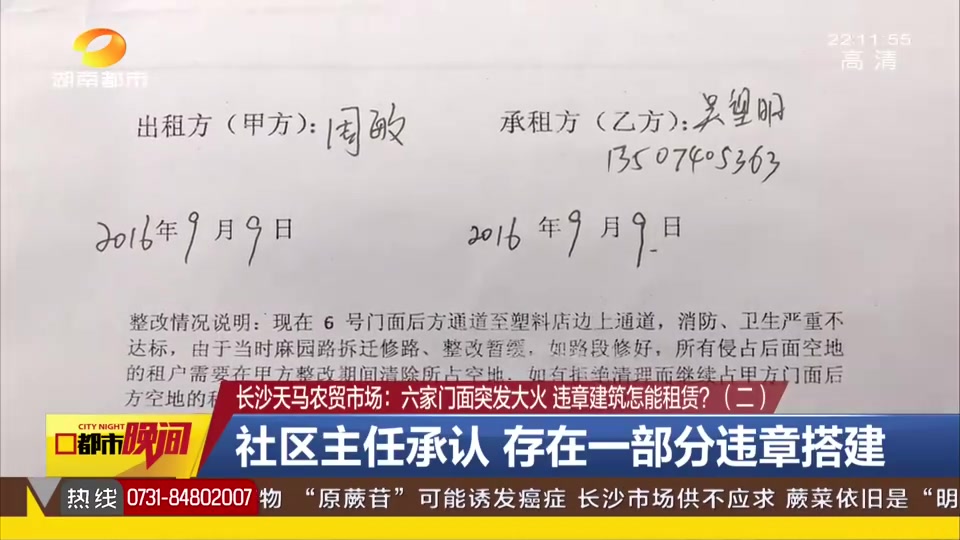 湖南都市
22:11:55
高清
出租方（甲方）：周敏
承租方（乙方）：吴塑明
13507405363
2016年9月9日
2016年9月9日
整改情况说明：现在 6 号门面后方通道至塑料店边上通道，消防、卫生严重不
达标，由于当时麻园路拆迁修路、整改暂缓，如路段修好，所有侵占后面空地
的租户需要在甲方整改期间清除所占空地，如有拒绝清理而继续占甲方门面后
方空地的
长沙天马农贸市场：六家门面突发大火 违章建筑怎能租赁？（二）
CITY NIGHT
都市晚间
社区主任承认 存在一部分违章搭建
热线 0731-84802007 物 “原蕨苷”可能诱发癌症 长沙市场供不应求 蕨菜依旧是“明